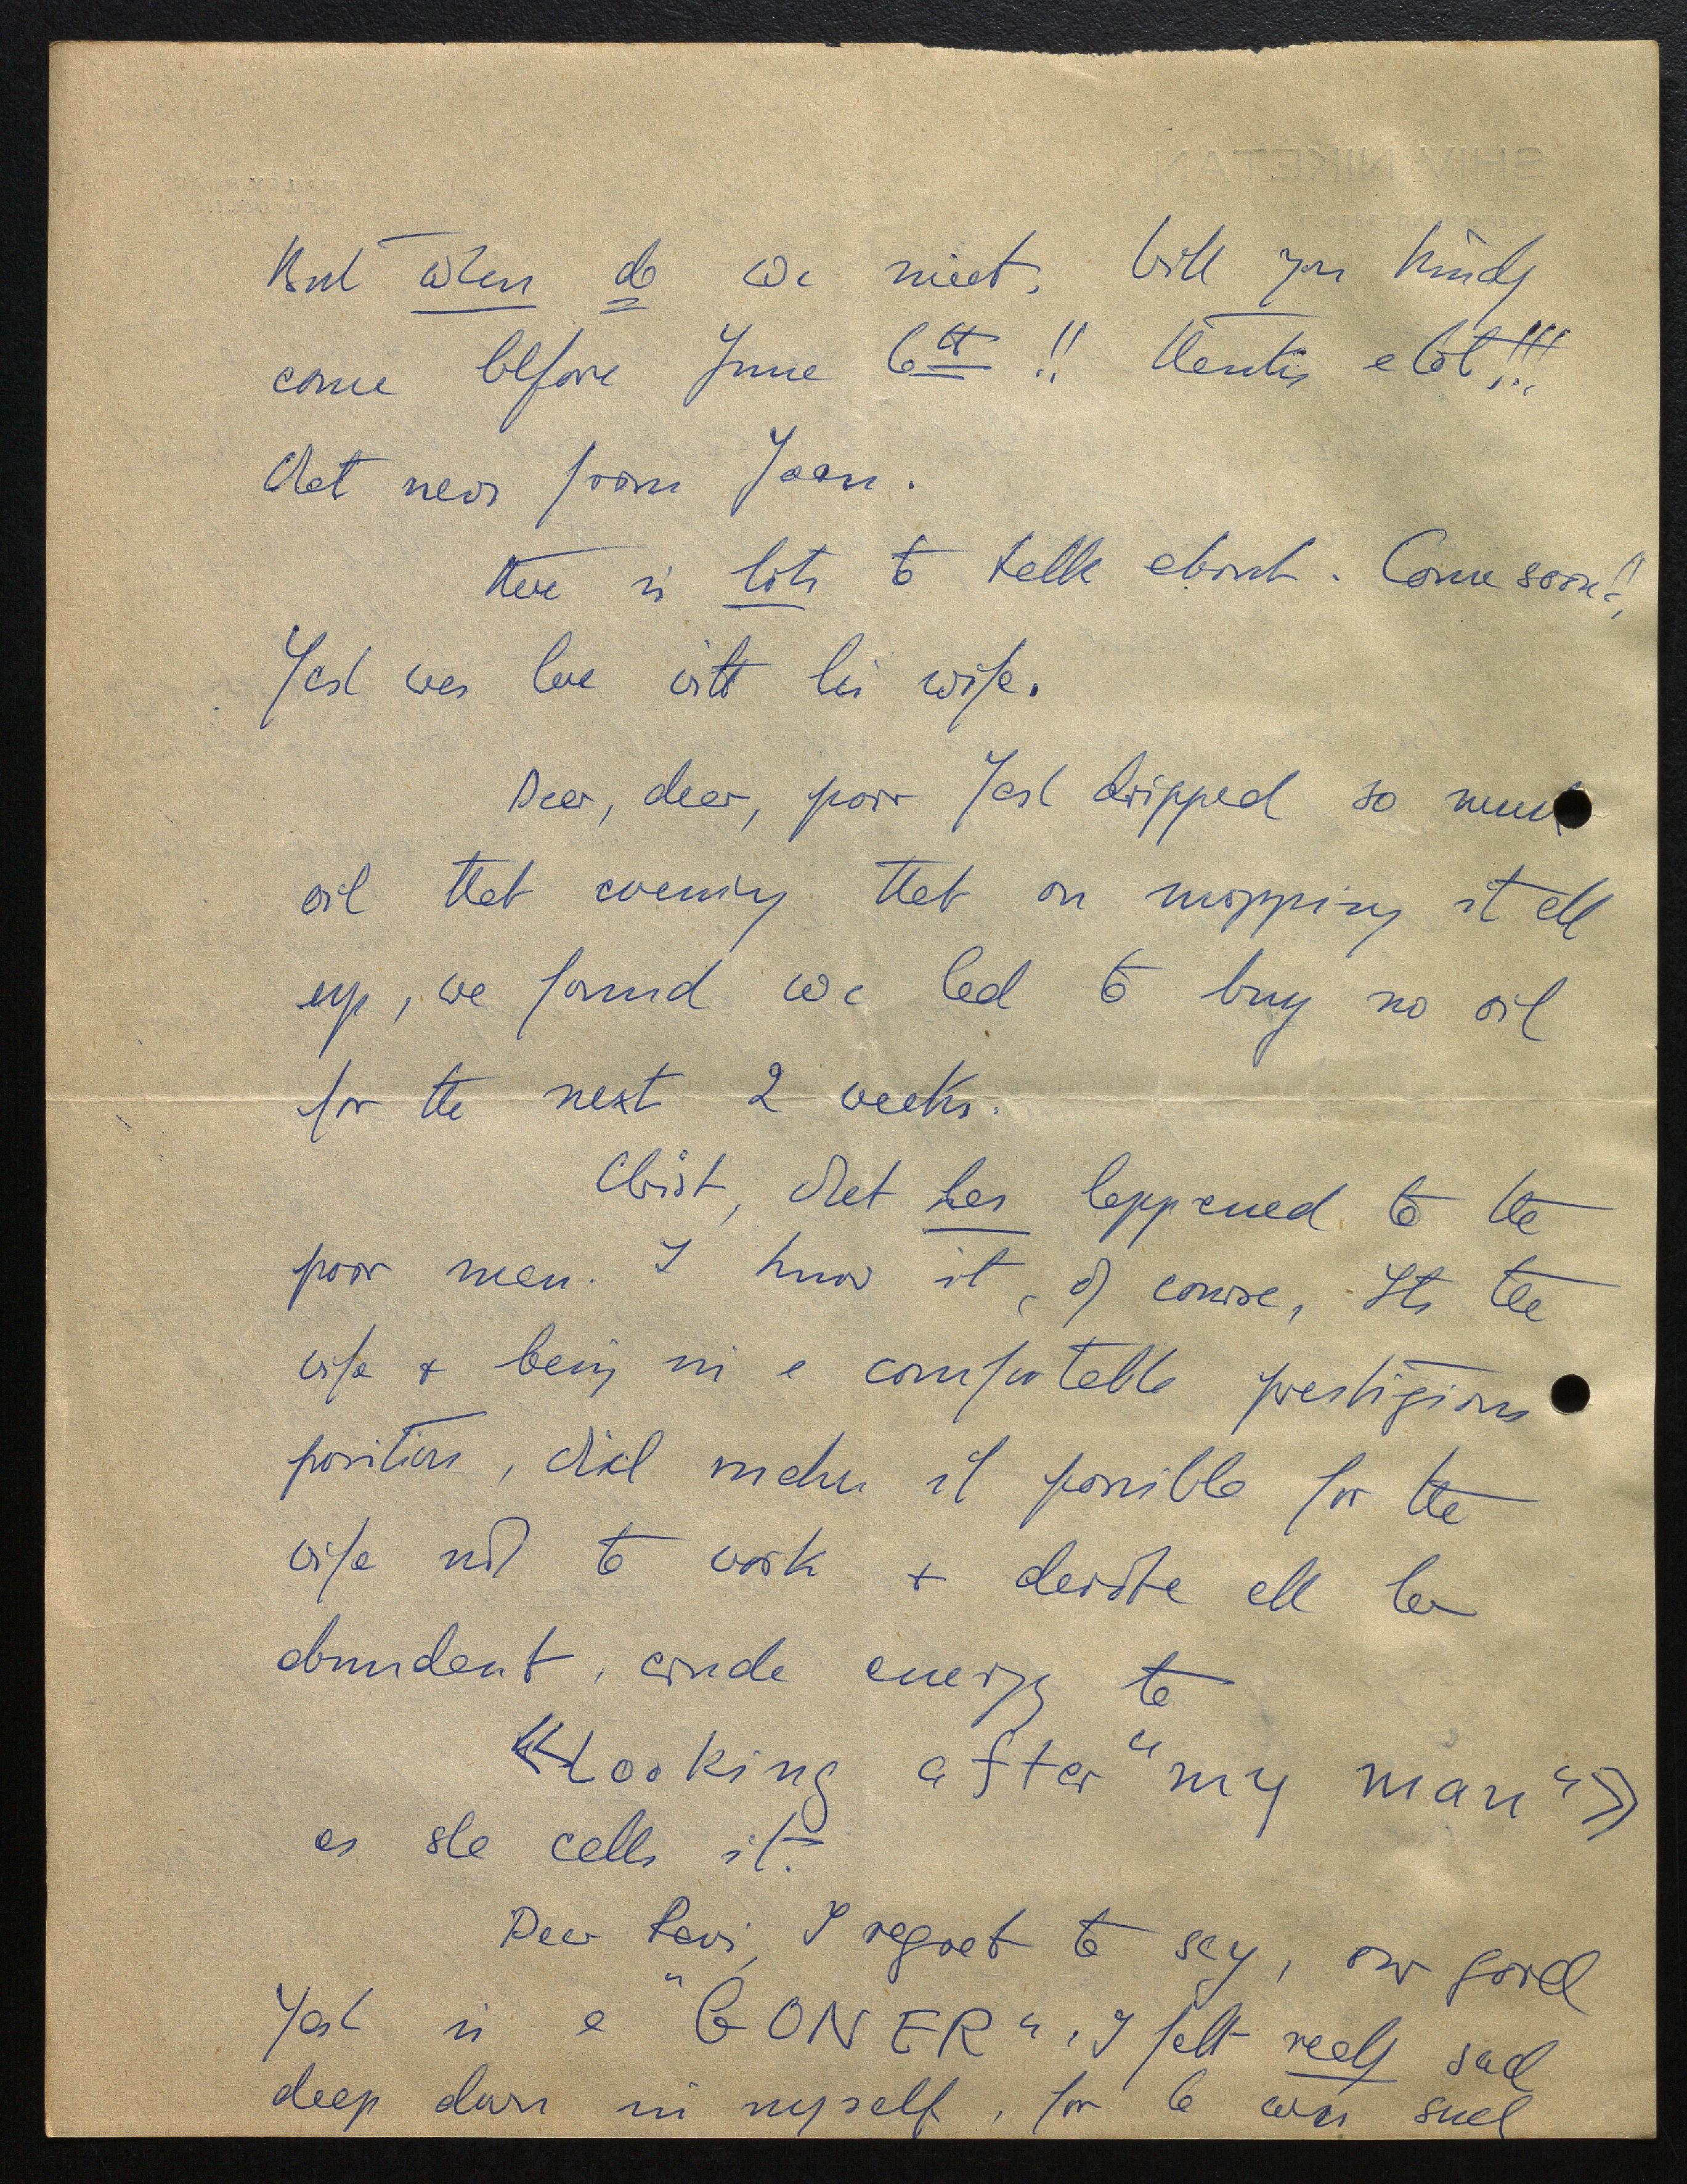 SHIV NIKETAN
But when do we meet. Will you kindly
come before June 6th !! Thanks a lot!!!
What news from Joan.
There is lots to talk about. Come soon!!
Yest was here with his wife.
Dear, dear, poor Yest dripped so much
oil that evening that on mopping it all
up, we found we had to buy no oil
for the next 2 weeks.
Christ, what has happened to the
poor man. I know it, of course, Its the
wife & being in a comfortable prestigious
position, which makes it possible for the
wife not to work & devote all her
abundant, crude energy to
«Looking after "my man"»
as she calls it.
Dear Ravi, I regret to say, our good
Yest is a "GONER", I felt really sad
deep down in myself, for he was such